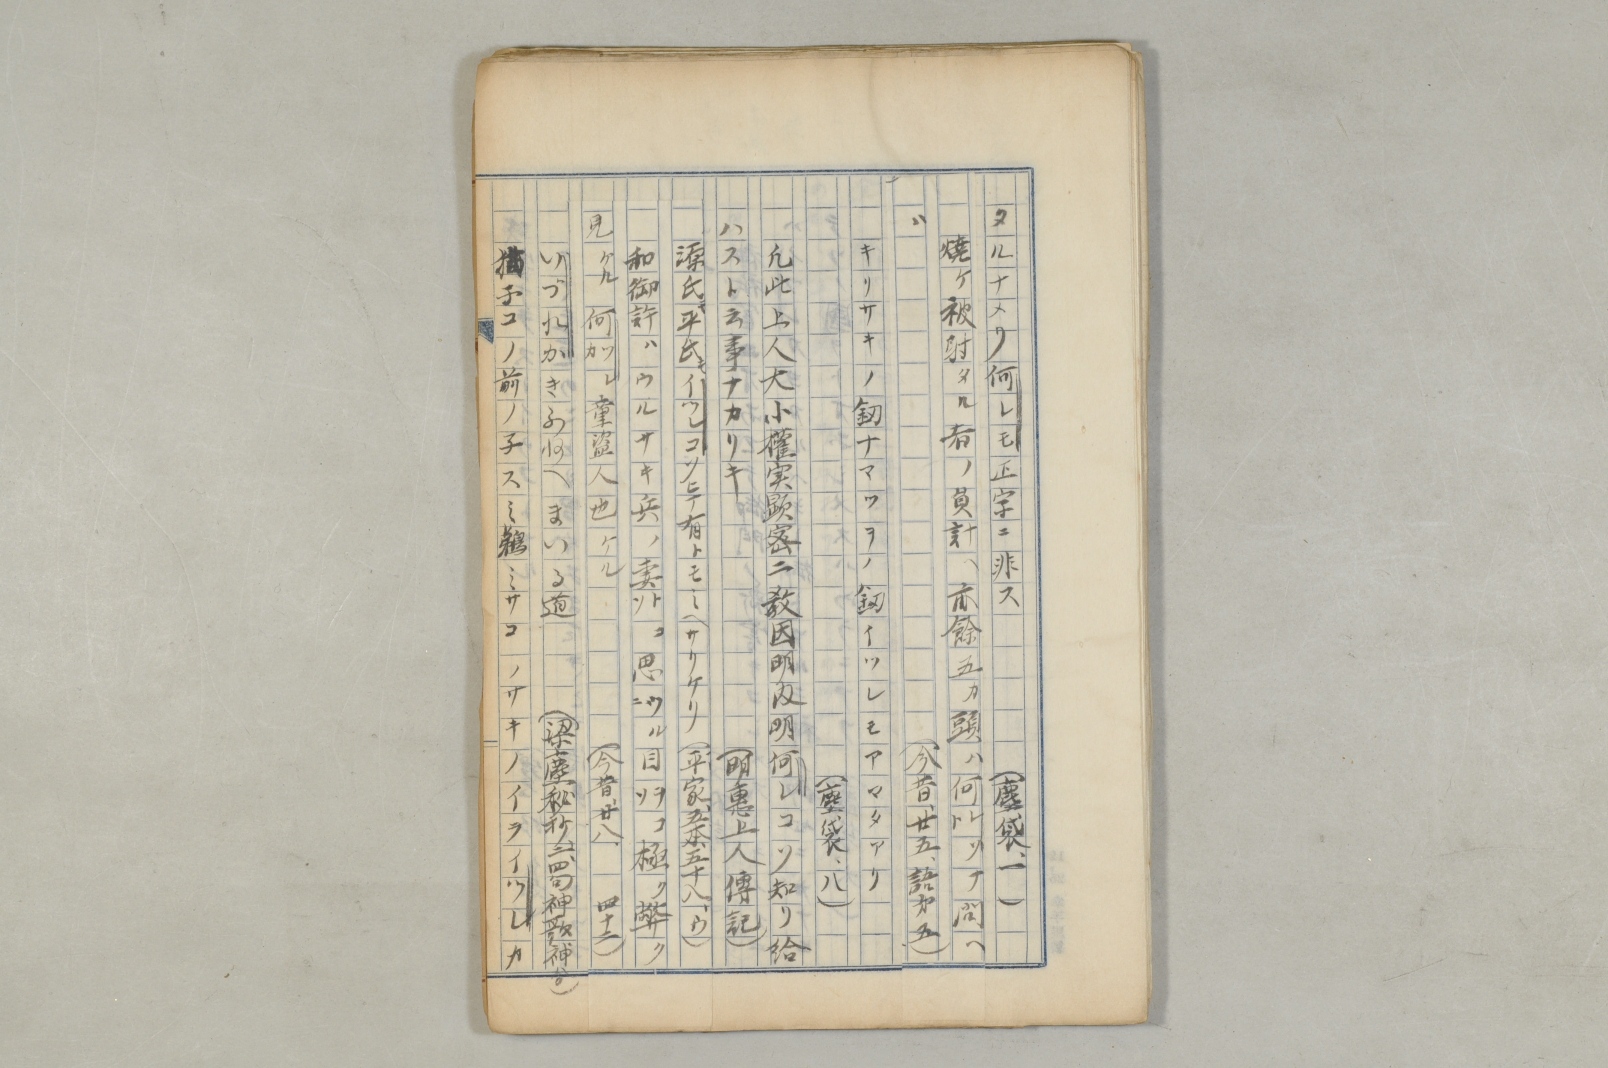 タルナメリ何レモ正宗ニ非ス （塵袋、一）
焼ケ被射タル者ノ員計ヘ亦餘五カ頭ハ何トルソナ問ヘ
ハ （今昔、廿五、語第五）
キリサキノ釼ナマツヲノ釼イツレモアマタアリ
（塵袋、八）
凡此上人大小權実顕密二教因明内明何レコソ知リ給
ハスト云事ナカリキ （明惠上人傳記）
源氏モ平氏モイツレコソ有トモミヘサリケリ （平家、五本五十八、ウ）
和御許ハウルサキ兵ノトソコ思ツルニ目ヲソコ極ク弊ク
見ケル何カツレ童盗人也ケル （今昔、廿八、 四十二）
いづれかきふねへまいる道 （梁塵秘抄 四句神歌神分）
猫子コノ前ノ子スミ鵜ミサコノサキノイヲイツレカ